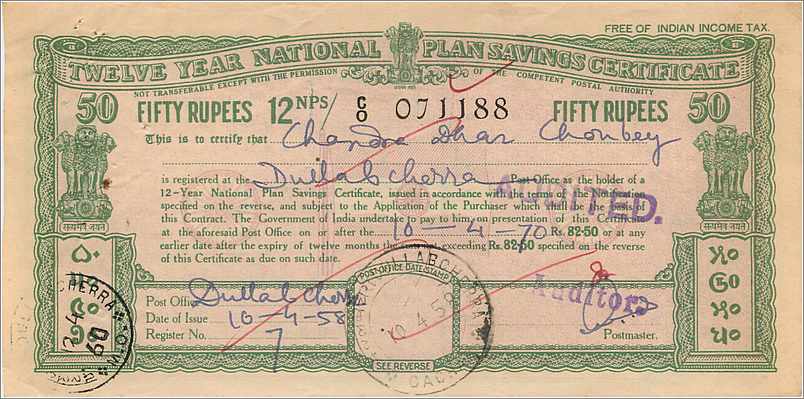 FREE OF INDIAN INCOME TAX.
TWELVE YEAR NATIONAL PLAN SAVINGS CERTIFICATE
NOT TRANSFERABLE EXCEPT WITH THE PERMISSION OF THE COMPETENT POSTAL AUTHORITY
50 FIFTY RUPEES 12NPS/ C/O 071188 FIFTY RUPEES 50
This is to certify that Chandra Dhar Choubey
is registered at the Dullabcherra Post Office as the holder of a
12-Year National Plan Savings Certificate, issued in accordance with the terms of the Notification
specified on the reverse, and subject to the Application of the Purchaser which shall be the basis of
this Contract. The Government of India undertake to pay to him on presentation of this Certificate
at the aforesaid Post Office on or after the 10-4-70 Rs. 82·50 or at any
earlier date after the expiry of twelve months the amount not exceeding Rs. 82·50 specified on the reverse
of this Certificate as due on such date.
AUDITED.
सत्यमेव जयते
सत्यमेव जयते
POST-OFFICE DATE STAMP
Post Office Dullabcherra
Date of Issue 10-4-58
Register No. 7
10.4.58
SEE REVERSE
Auditor
Postmaster.
CHERRA
24
60
५०